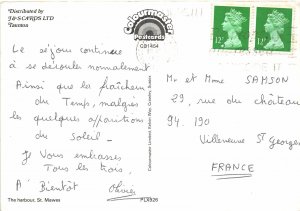 Distributed by
J & S CARDS LTD
Taunton
Colourmaster
Postcards
Le séjour continue
à se dérouler normalement
Ainsi que la fraîcheur
du Temps, malgrés
les quelques apparitions
du Soleil.
Je Vous embrasses
Tous les trois,
A Bientôt Olivier
The harbour, St. Mawes
PLX626
12P
12P
Mr et Mme SAMSON
29, rue du château
94.190
Villeneuve St Georges
FRANCE